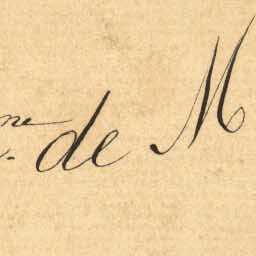 ne de M